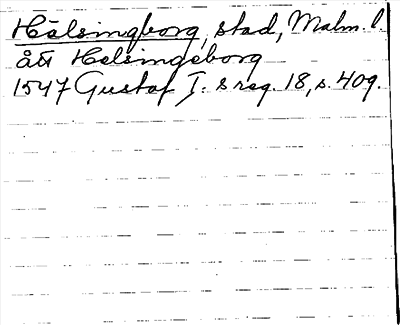 Hälsingborg, stad, Malm. l.
åtı Helsingeborg
1547 Gustaf I:s reg. 18, s. 409.